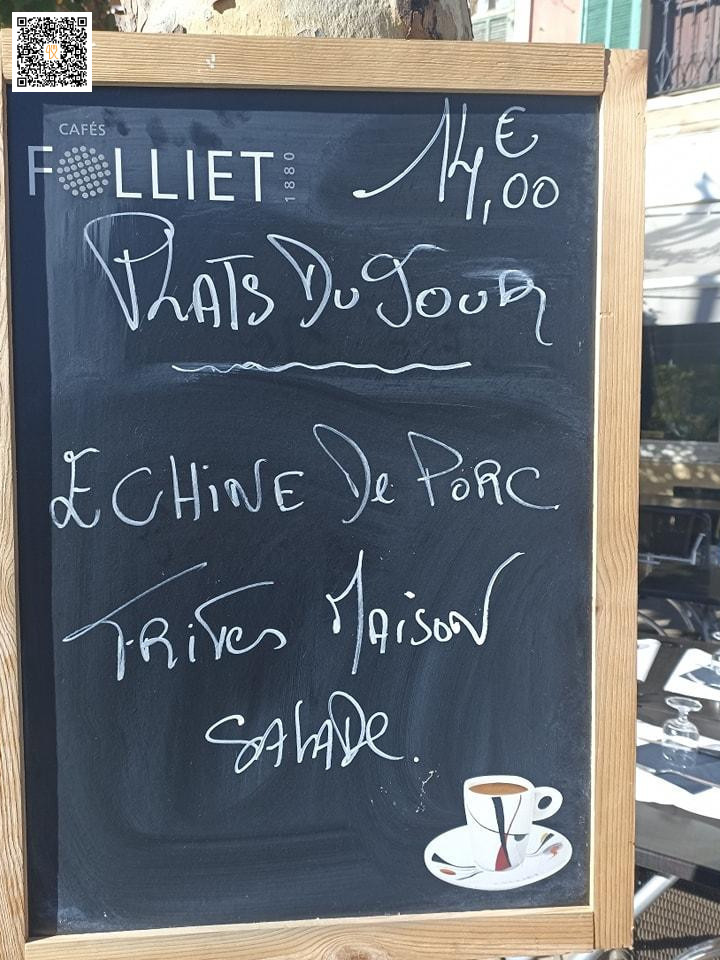 CAFÉS
FOLLIET 1880
14,00 €
PLATS DU JOUR
ECHINE De PORC
FRITes MAISON
SALADe.